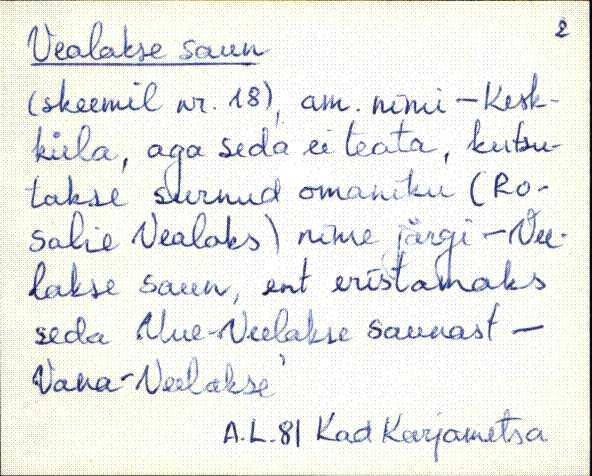 2
Vealakse saun
(skeemil nr. 18), am. nimi – Kesk-
küla, aga seda ei teata, kutsu-
takse surnud omaniku (Ro-
salie Vealaks) nime järgi – Vee-
lakse saun, ent eristamaks
seda Uue-Veelakse saunast –
Vana-Veelakse'
A.L. 81 Kad Karjametsa